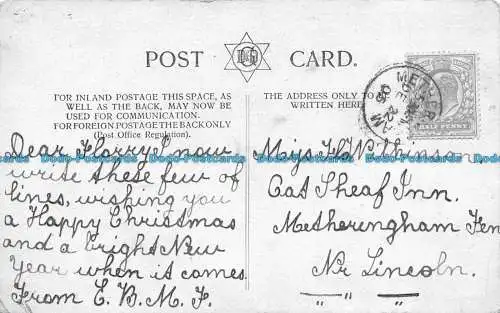 POST CARD.
FOR INLAND POSTAGE THIS SPACE, AS
WELL AS THE BACK, MAY NOW BE
USED FOR COMMUNICATION.
FOR FOREIGN POSTAGE THE BACK ONLY
(Post Office Regulation).
THE ADDRESS ONLY TO
WRITTEN HERE
HALF PENNY
Dear Harry I now
write these few of
lines, wishing you
a Happy Christmas
and a bright New
Year when it comes.
From E. B. M. F.
Oat Sheaf Inn.
Metheringham Fen
Nr Lincoln.
Dodo-Postcards Dodo-Postcards Dodo-Postcards Dodo-Postcards